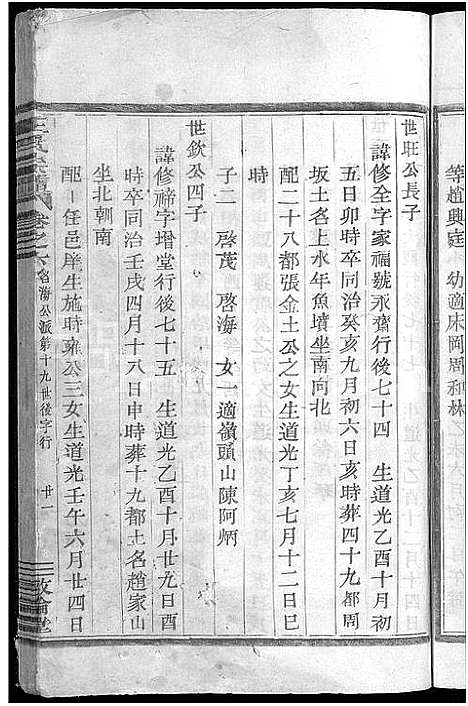 等趙興庭 幼適床岡周和林
世旺公長子
諱修全字家福號永齋行後七十四 生道光乙酉十月初
五日卯時卒同治癸亥九月初六日亥時葬四十九都周
坂土名上水年魚墳坐南向北
配二十八都張金土公之女生道光丁亥七月十二日巳
時
子二 啓茂 啓海 女一適嶺頭山陳阿炳
世欽公四子
諱修禘字增堂行後七十五 生道光乙酉十月廿九日酉
時卒同治壬戌四月十八日申時葬十九都土名趙家山
坐北朝南
配仁邑庠生施時雍公三女生道光壬午六月廿四日
王氏宗譜 卷之六 名海公派第十九世後字行 廿一 敦倫堂